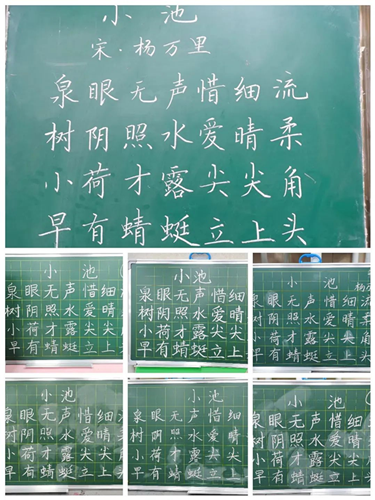 小池
宋·杨万里
泉眼无声惜细流
树阴照水爱晴柔
小荷才露尖尖角
早有蜻蜓立上头
小池
泉眼无声惜细
树阴照水爱晴
小荷才露尖尖
早有蜻蜓立上
小池
泉眼无声惜细
树阴照水爱晴
小荷才露尖尖
早有蜻蜓立上
小池
杨万
泉眼无声惜细流
树阴照水爱晴柔
小荷才露尖尖角
早有蜻蜓立上头
小池
泉眼无声惜细
树阴照水爱晴
小荷才露尖尖
早有蜻蜓立上
小池
泉眼无声惜细
树阴照水爱晴
小荷才露尖尖
早有蜻蜓立上
小池
泉眼无声惜细流
树阴照水爱晴柔
小荷才露尖尖角
早有蜻蜓立上头